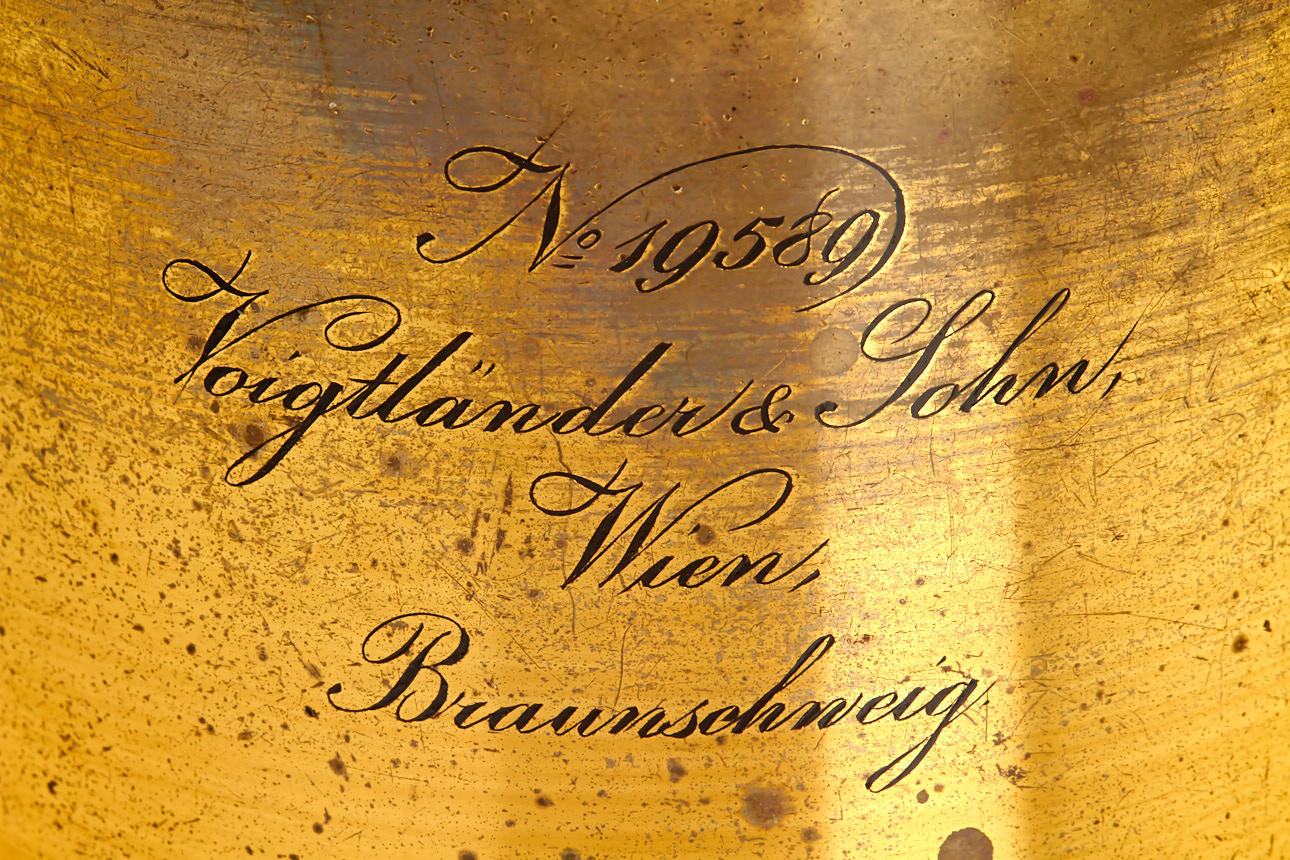 No 19589
Voigtländer & Sohn,
Wien,
Braunschweig.